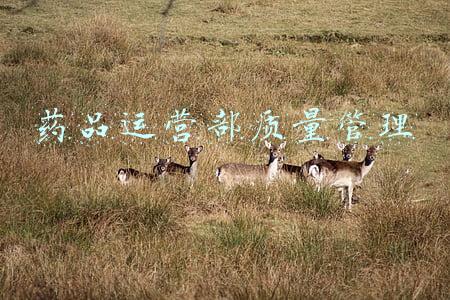 药品运营部质量管理